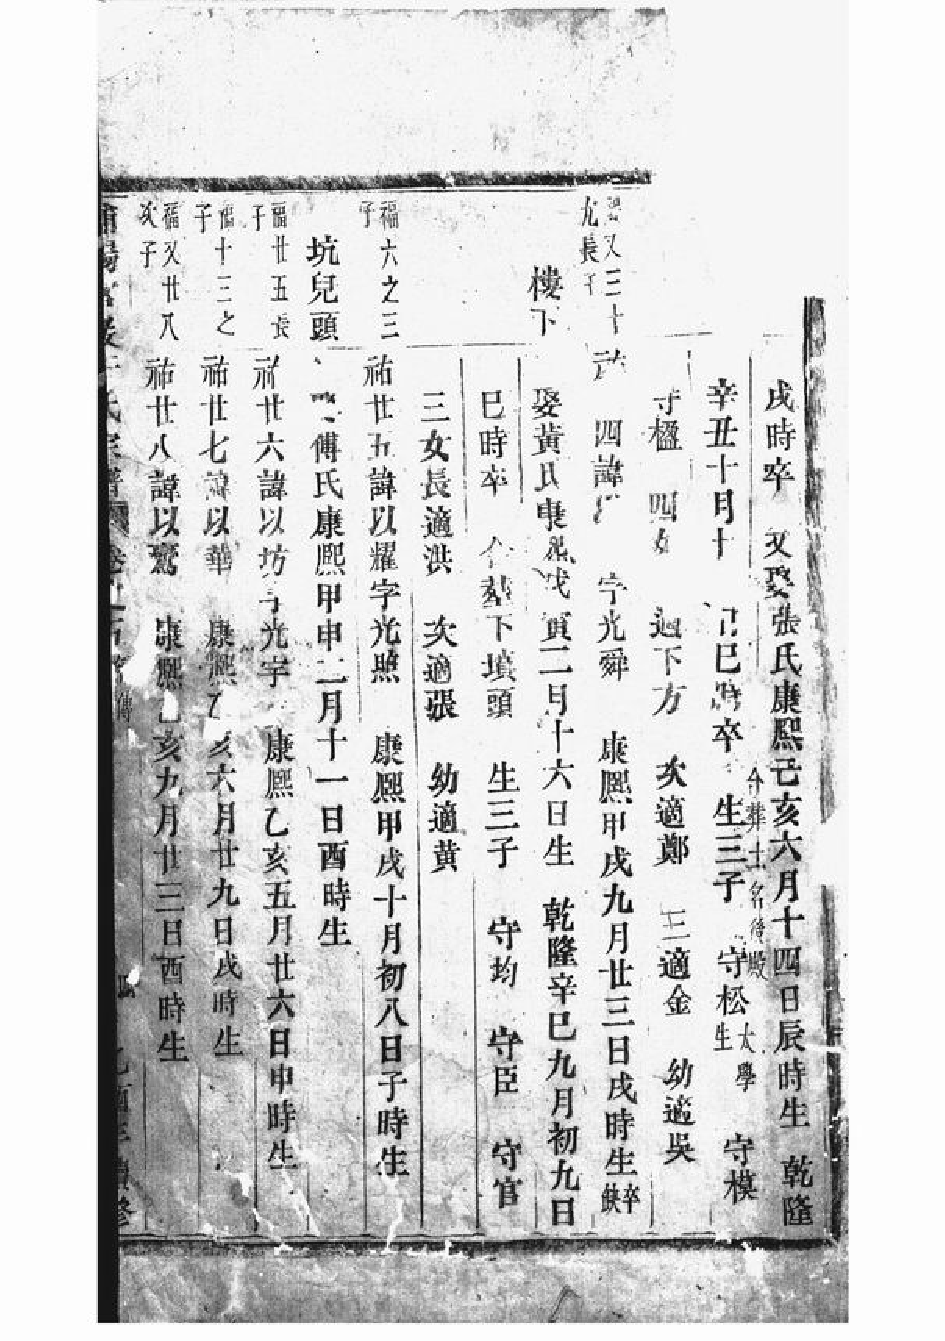 戌時卒　又娶張氏康熙己亥六月十四日辰時生　乾隆
辛丑十月十　己巳時卒　合葬土名後殿　生三子　守松太學生　守模
守楹　四女　適下方　次適鄭　三適金　幼適吳
又三十九長子
四諱　字光舜　康熙甲戌九月廿三日戌時生卒缺
樓下
娶黃氏康熙戊寅二月十六日生　乾隆辛巳九月初九日
巳時卒　合葬下墳頭　生三子　守均　守臣　守官
三女長適洪　次適張　幼適黃
福六之三子
祐廿五諱以耀字光照　康熙甲戌十月初八日子時生
坑兒頭
傅氏康熙甲申二月十一日酉時生
福廿五長子
祐廿六諱以坊字光宇　康熙乙亥五月廿六日申時生
福十三之子
祐廿七諱以華　康熙乙亥六月廿九日戌時生
福又廿八次子
祐廿八諱以鸞　康熙乙亥九月廿三日酉時生
氏宗譜　卷　傳　修